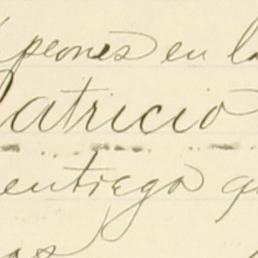 peones en la
Patricio
entrego qu
os